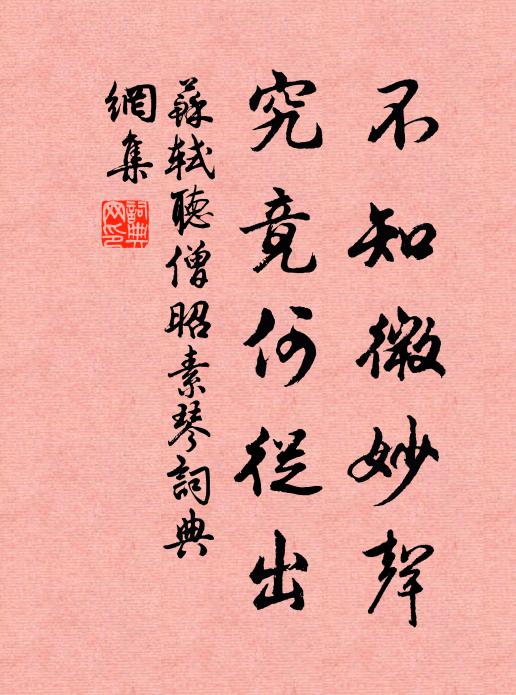 不知微妙聲
究竟何從出
蘇軾聽僧昭素琴詞典
網集
詞典網印